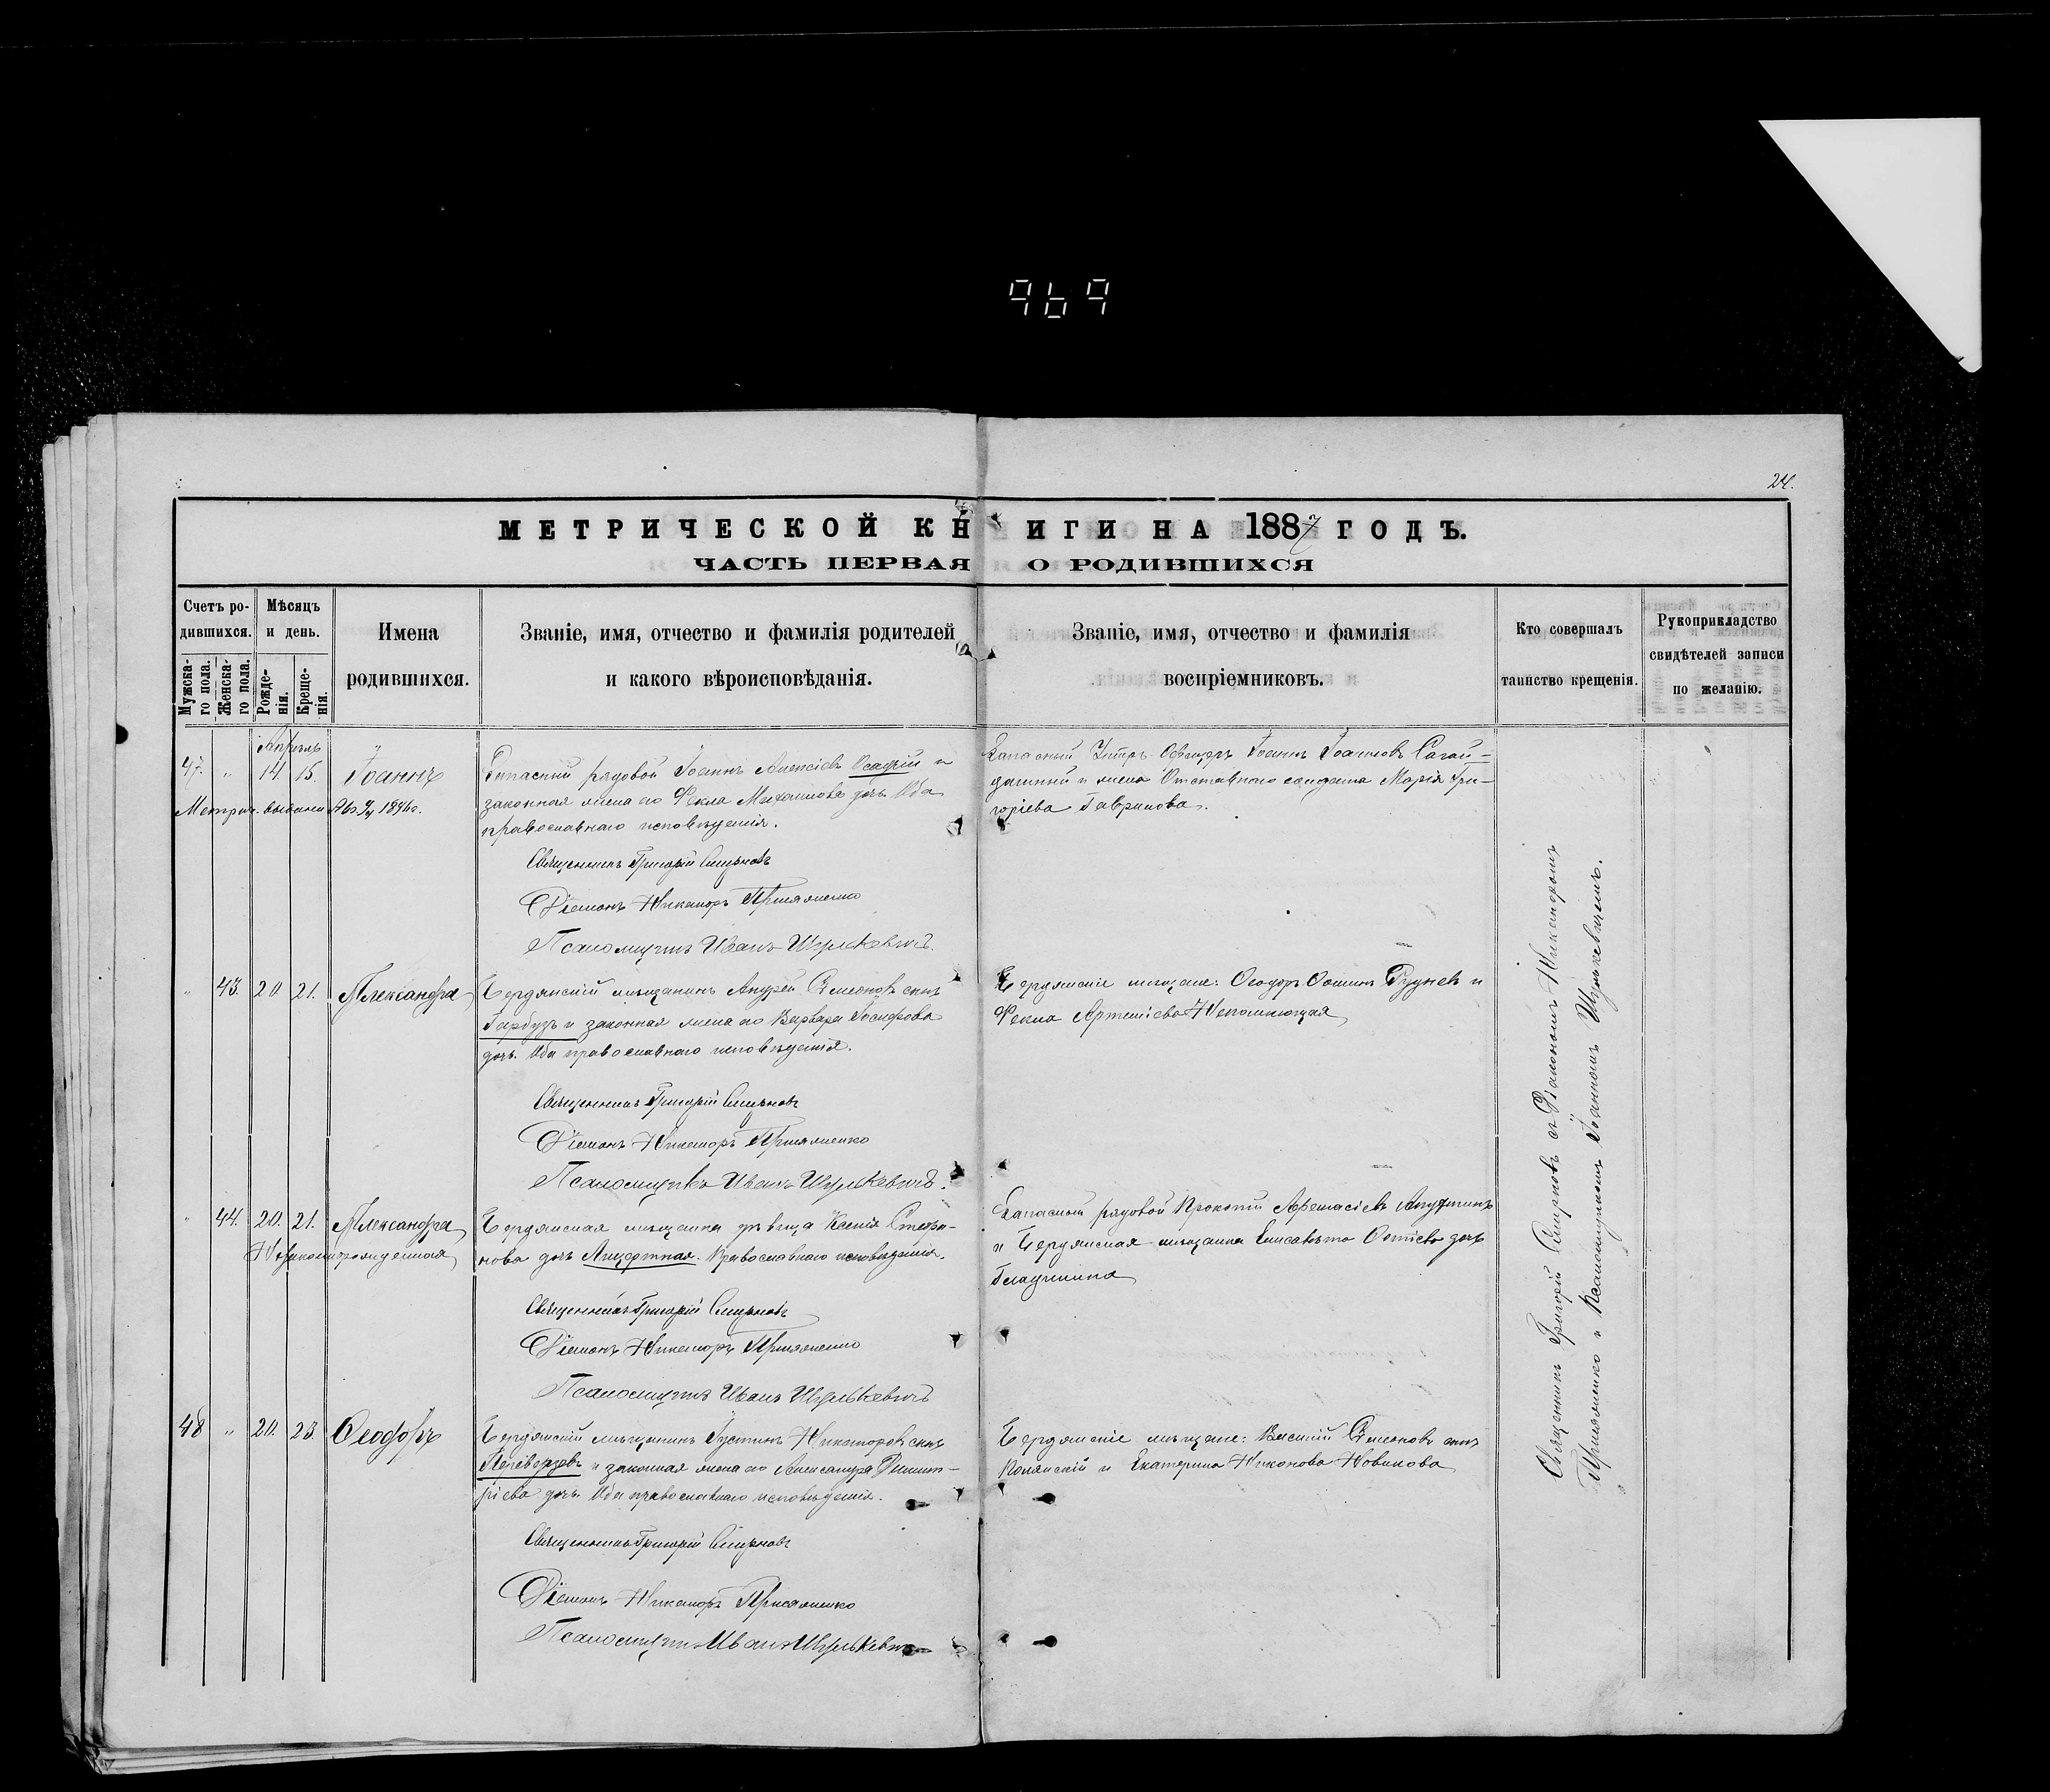 969
24.
МЕТРИЧЕСКОЙ КНИГИ НА 1887 ГОДЪ.
ЧАСТЬ ПЕРВАЯ О РОДИВШИХСЯ
Счетъ родившихся.
Мужскаго пола.
Женскаго пола.
Мѣсяцъ и день.
Рожденія.
Крещенія.
Имена
родившихся.
Званіе, имя, отчество и фамилія родителей
и какого вѣроисповѣданія.
Званіе, имя, отчество и фамилія
воспріемниковъ.
Кто совершалъ
таинство крещенія.
Рукоприкладство
свидѣтелей записи
по желанію.
Апрѣль
47. " 14. 15. Іоаннъ
Метрич. выпись
Запасный рядовой Іоаннъ Алексіевъ Осадчій и
законная жена его Фекла Михаилова дочь. Оба
православнаго исповѣданія.
Запасный Унтеръ Офицеръ Іоаннъ Іоанновъ Сагай-
дачный и жена Отставнаго солдата Марія Гри-
горіева Гаврилова.
Священникъ Григорій Смирновъ
Діаконъ Никаноръ Присяженко
Псаломщикъ Иванъ Шулькевичъ.
" 43. 20. 21. Александра
Бердянскій мѣщанинъ Андрей Симеоновъ сынъ
Гарбузъ и законная жена его Варвара Іосифова
дочь. Оба православнаго исповѣданія.
Бердянскіе мѣщане: Ѳеодоръ Ѳоминъ Руднев и
Фекла Артеміева Непомнющая
Священникъ Григорій Смирновъ
Діаконъ Никаноръ Присяженко
Псаломщикъ Иванъ Шулькевичъ.
" 44. 20. 21. Александра
Незаконнорожденная
Бердянская мѣщанка дѣвица Ксенія Стефа-
нова дочь. Православнаго исповѣданія.
Запасный рядовой Прокопій Афанасіевъ
и Бердянская мѣщанка Елисавета дочь
Священникъ Григорій Смирновъ
Діаконъ Никаноръ Присяженко
Псаломщикъ Иванъ Шулькевичъ
48 " 20. 23. Ѳеодоръ
Бердянскій мѣщанинъ Іустинъ Никаноровъ сынъ
Переверзевъ и законная жена его Александра Димит-
ріева дочь. Оба православнаго исповѣданія.
Бердянскіе мѣщане: Василій Симеоновъ сынъ
Полянскій и Екатерина Никонова Новикова
Священникъ Григорій Смирновъ
Діаконъ Никаноръ Присяженко
Псаломщикъ Иванъ Шулькевичъ
Священникъ Григорій Смирновъ съ Діакономъ Никаноромъ
Присяженко и Псаломщикомъ Іоанномъ Шулькевичемъ.